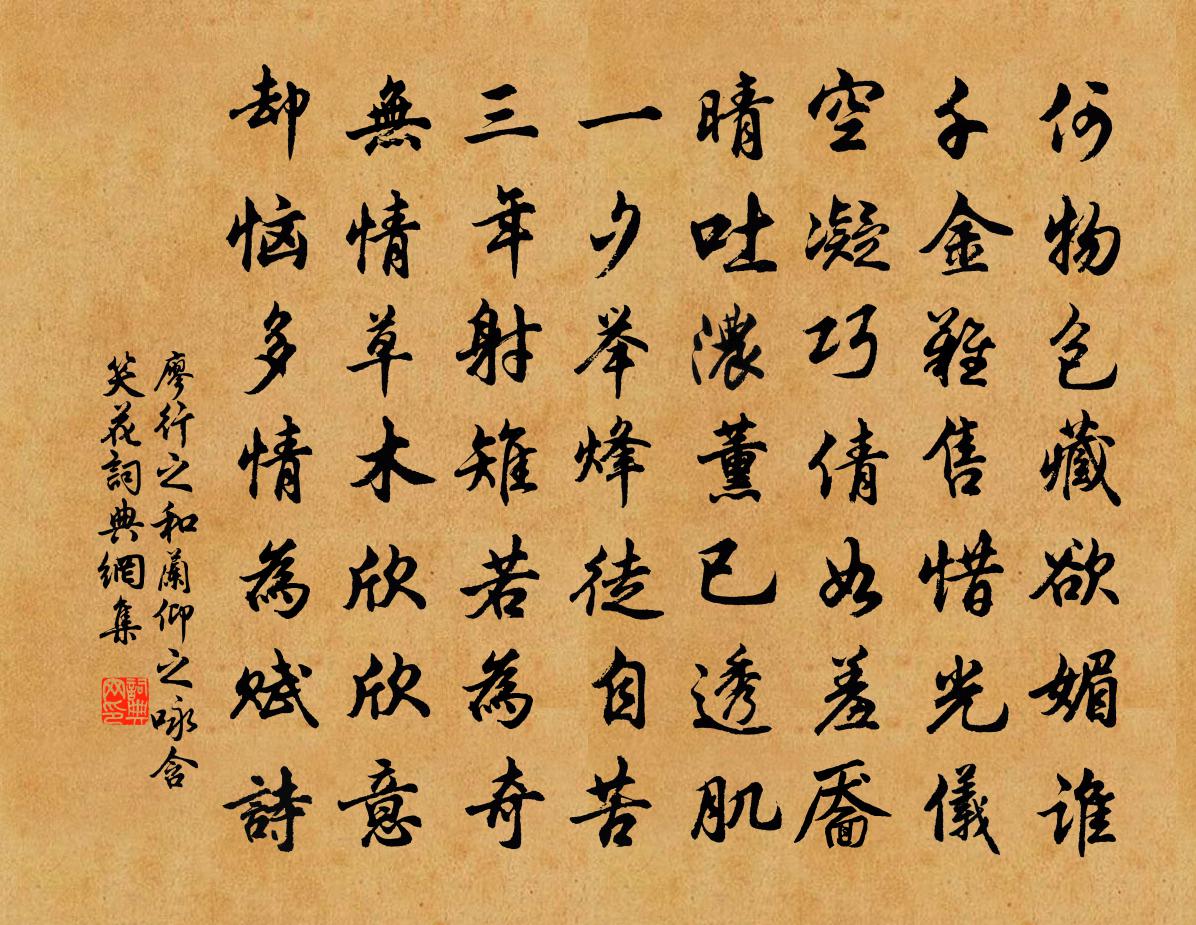 何物包藏欲媚谁
千金難售惜光儀
空凝巧倩如羞靥
晴吐濃薰已透肌
一夕举烽徒自苦
三年射雉若為奇
無情草木欣欣意
却恼多情為赋詩
廖行之和蘭仰之咏含
笑花詞典網集
詞典
网印